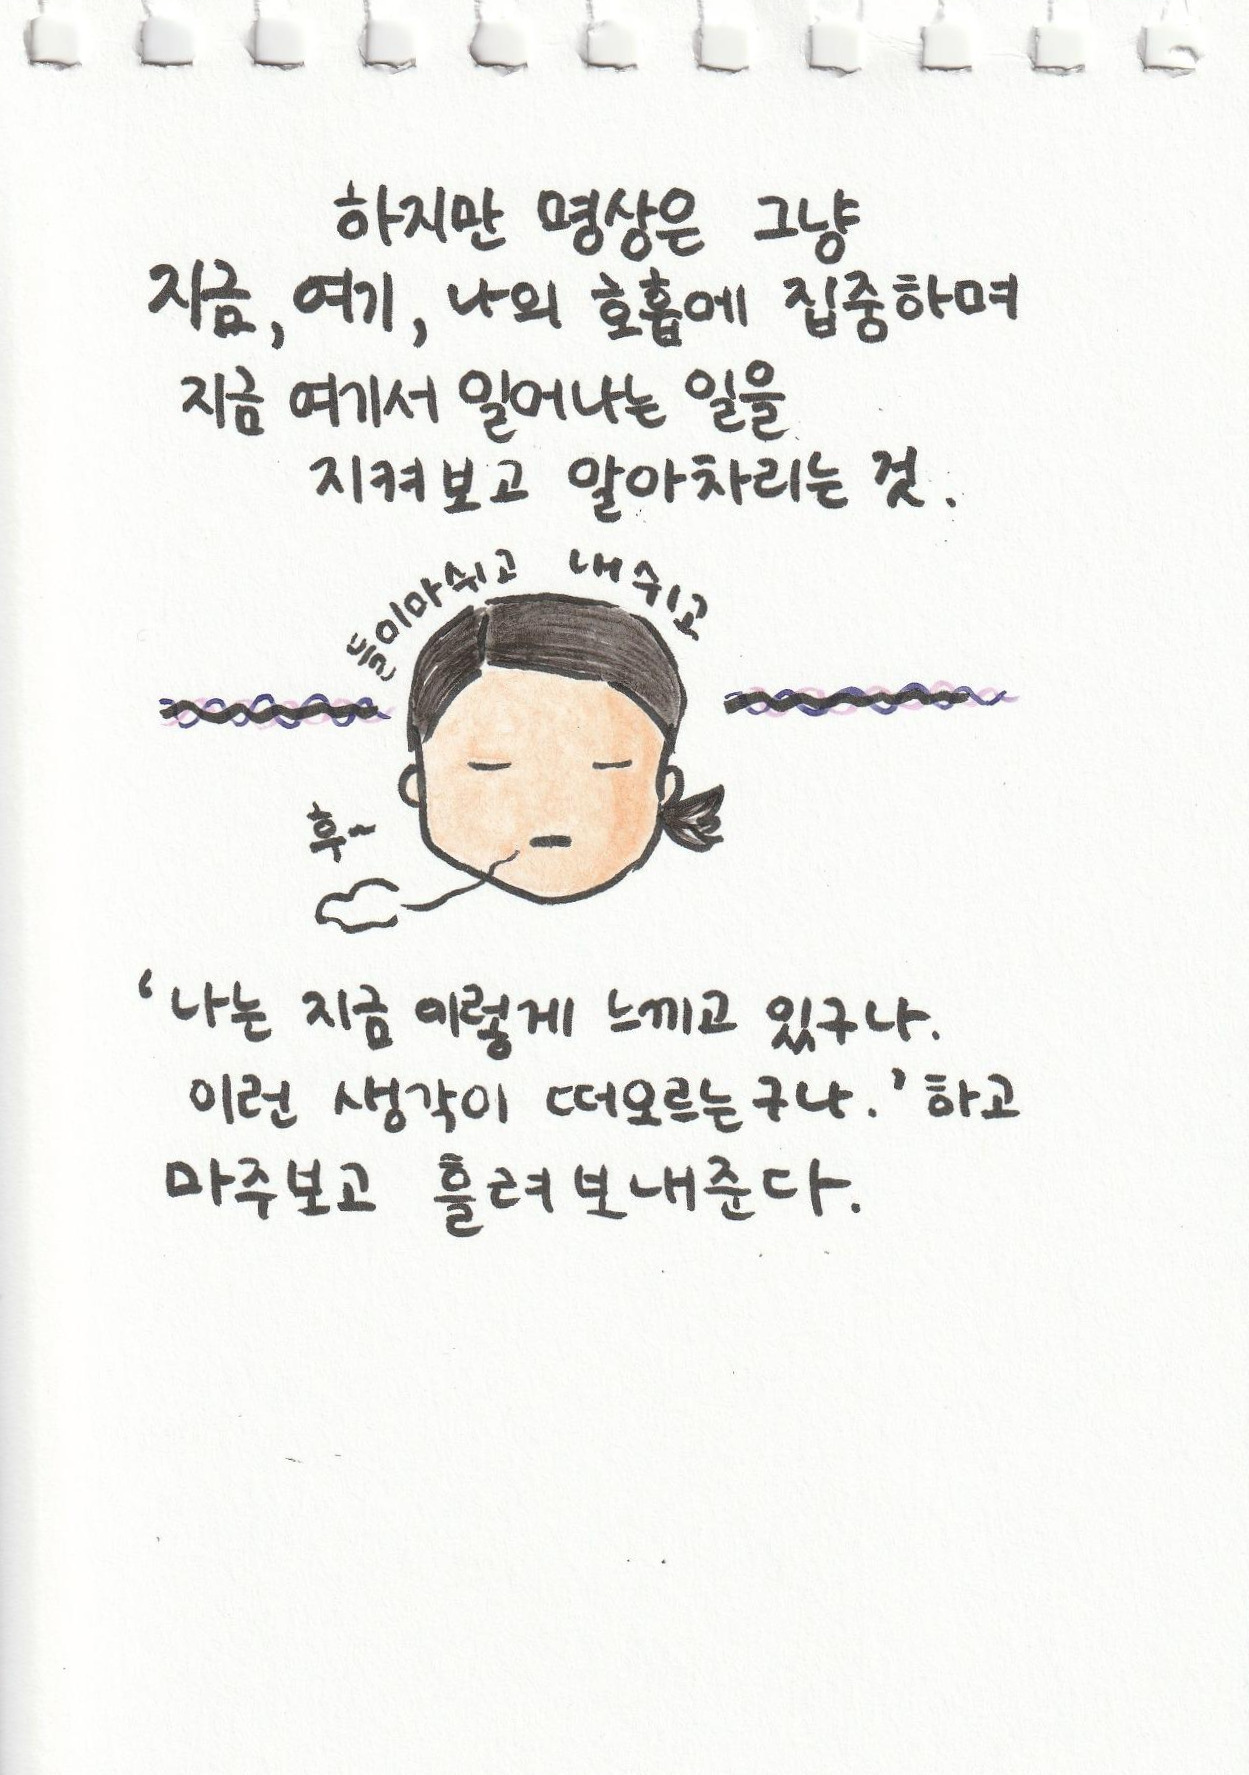 하지만 명상은 그냥
지금, 여기, 나의 호흡에 집중하며
지금 여기서 일어나는 일을
지켜보고 알아차리는 것.
들이마쉬고 내쉬고
후~
‘나는 지금 이렇게 느끼고 있구나.
이런 생각이 떠오르는구나.’ 하고
마주보고 흘려보내준다.